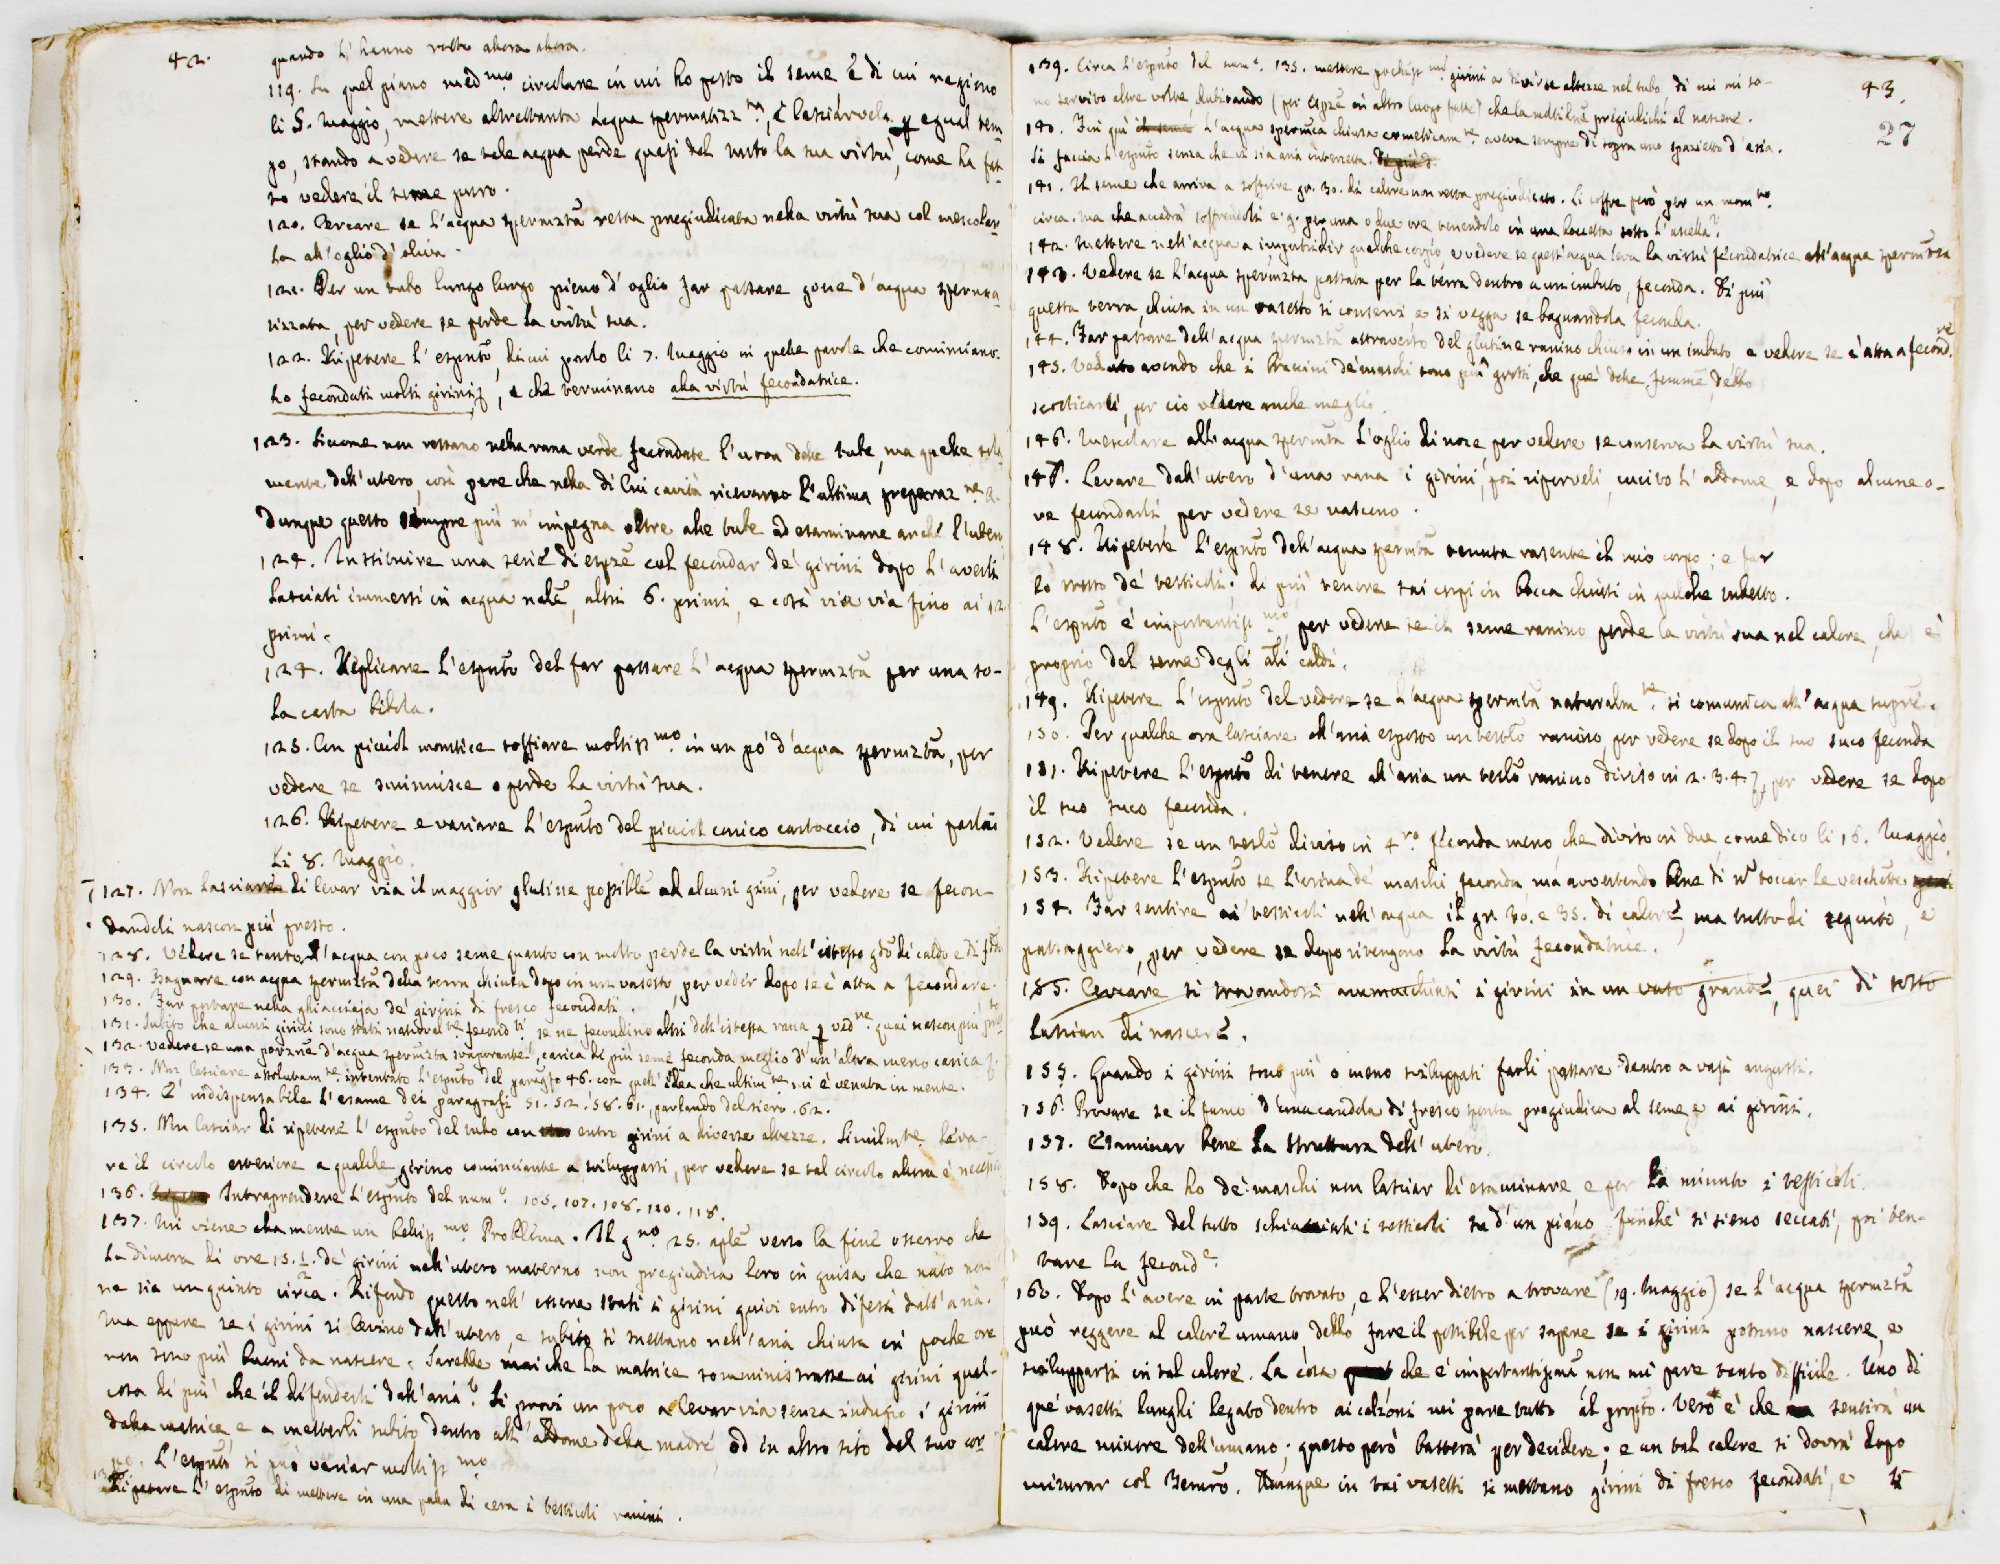 42.
quando l'hanno rotto allora allora.
119. In quel piano med.mo circolare in cui ho posto il seme, e di cui ragiono
li 5. Maggio, mettere altrettanta acqua spermatizz.ta, e lasciarvela p egual tem-
po, stando a vedere se tale acqua perde quasi del tutto la sua virtù, come ha fat-
to vedere il seme puro.
120. Cercare se l'acqua spermzta resta pregiudicata nella virtù sua col mescolar-
la all'oglio d'oliva.
121. Per un tubo lungo lungo pieno d'oglio far passare gocce d'acqua sperma-
tizzata, per vedere se perde la virtù sua.
122. Ripetere l'esprto, di cui parlo li 7. Maggio in quelle parole che cominciano.
ho fecondati molti girini, e che terminano alla virtù fecondatrice.
123. Siccome non restano nella rana verde fecondate l'uova delle tube, ma quelle sola-
mente dell'utero, così pare che nella di lui cavità ricevano l'ultima preparaz.ne A-
dunque questo sempre più m'impegna oltre alle tube ad esaminare anche l'utero
124. Instituire una serie di esprze col fecondar de' girini dopo l'averli
lasciati immersi in acqua nale, altri 6. primi, e così via via fino ai 12
primi.
124. Replicare l'esprto del far passare l'acqua spermzta per una so-
la carta bibola.
125. Con piccol mantice soffiare moltiss.mo in un pò d'acqua spermzta, per
vedere se sminuisce o perde la virtù sua.
126. Ripetere e variare l'esprto del piccol conico cartoccio, di cui parlai
li 8. Maggio.
127. Non lasciare di levar via il maggior glutine possibile ad alcuni girini, per vedere se fecon-
dandoli nascon più presto.
128. Vedere se tanto l'acqua con poco seme quanto con molto perde la virtù nell'istesso gdo di caldo e di fdo
129. Bagnare con acqua spermzta della terra chiusa dopo in un vasetto, per veder dopo se è atta a fecondare.
130. Far portare nella ghiacciaja de' girini di fresco fecondati.
131. Subito che alcuni girini sono stati naturalm.te fecond.ti se ne fecondino altri dell'istessa rana p ved.re quai nascon più pres.to
132. Vedere se una porzne d'acqua spermzta svaporante, carica di più seme feconda meglio d'un'altra meno carica
133. Non lasciare assolutam.te intentato l'esprto del paragfo 46. con quell'idea che ultim.te mi è venuta in mente.
134. E' indispensabile l'esame dei paragrafi 51. 52. 58. 61. parlando del siero. 62.
135. Non lasciar di ripetere l'esprto del tubo con entro girini a diverse altezze. Similm.te leva-
re il circolo esteriore a qualche girino cominciante a svilupparsi, per vedere se tal circolo allora è necessario
136. Intraprendere l'esprto del num.o 105. 107. 108. 110. 118.
137. Mi viene alla mente un belliss.mo Problema. Il g.no 25. aple verso la fine osservo che
la dimora di ore 15. 1/2. de' girini nell'utero materno non pregiudica loro in guisa che nato non
ne sia un quinto circa. Rifondo questo nell'essere stati i girini quivi entro difesi dall'aria.
Ma eppure se i girini si levino dall'utero, e subito si mettano nell'aria chiusa in poche ore
non sono più buoni da nascere. Sarebbe mai che la matrice somministrasse ai girini qual-
cosa di più che il difenderli dall'aria? Si provi un poco a levar via senza indugio i girini
dalla matrice e a metterli subito dentro all'addome della madre, od in altro sito del suo cor-
po. L'esprto si può variar moltiss.mo
138. Ripetere l'esprto di mettere in una palla di cera i testicoli ranini.
43.
27
139. Circa l'esprto del num.o 135. mettere pochiss.mi girini a diverse altezze nel tubo di cui mi so-
no servito altre volte dubitando (per esprze in altro luogo fatte) che la moltitudne pregiudichi al nascere.
140. Fin quì il seme l'acqua spermca chiusa ermeticam.te aveva sempre di sopra uno spazietto d'aria.
Si faccia l'esprto senza che vi sia aria interretta. Di più d.
141. Il seme che arriva a soffrire gr. 30. di calore non resta pregiudicato. Li soffre però per un mom.to
circa. Ma che accadrà soffrendoli e. g. per una o due ore tenendolo in una boccetta sotto l'ascella?
142. Mettere nell'acqua a imputridir qualche corpo, e vedere se quest'acqua leva la virtù fecondatrice all'acqua spermzta
143. Vedere se l'acqua spermzta, passata per la terra dentro a un imbuto, feconda. Di più
questa terra, chiusa in un vasetto si conservi e si vegga se bagnandola feconda.
144. Far passare dell'acqua spermzta attraverso del glutine ranino chiuso in un imbuto e vedere se è atta a fecond.re
145. Veduto avendo che i bracini de' maschi sono più grossi, che quei delle femmine, debbo
scorticarli, per ciò vedere anche meglio.
146. Mescolare all'acqua spermzta l'oglio di noce, per vedere se conserva la virtù sua.
147. Levare dall'utero d'una rana i girini, poi riporveli, cucito l'addome, e dopo alcune o-
re fecondarli per vedere se nascono.
148. Ripetere l'esprto dell'acqua spermta tenuta rasente il mio corpo; e far
lo stesso de' testicoli. Di più tenere tai corpi in bocca chiusi in qualche tubetto.
L'esprto è importantiss.mo per vedere se il seme ranino perde la virtù sua nel calore, che è
proprio del seme degli ali caldi.
149. Ripetere l'esprto del vedere se l'acqua spermta naturalm.te si comunica all'acqua supre.
150. Per qualche ora lasciare all'aria esposto un testlo ranino, per vedere se dopo il suo suco feconda
151. Ripetere l'esprto di tenere all'aria un testlo ranino diviso in 2. 3. 4. per vedere se dopo
il suo suco feconda.
152. Vedere se un testlo diviso in 4.ro feconda meno, che diviso in due come dico li 16. Maggio,
153. Ripetere l'esprto se l'orina de' maschi feconda, ma avvertendo bene di n toccar le veschette
154. Far sentire ai testicoli nell'acqua il gr. 30. e 35. di calore, ma tutto di seguito, e
passaggiero, per vedere se dopo ritengono la virtù fecondatrice.
155. Cercare si trovandosi ammucchiati i girini in un vaso grande, quei di sotto
lascian di nascere.
155. Quando i girini sono più o meno sviluppati farli passare dentro a vasi angusti.
156. Provare se il fumo d'una candela di fresco spenta pregiudica al seme e ai girini.
157. Esaminar bene la struttura dell'utero.
158. Dopo che ho de' maschi non lasciar di esaminare e per la minuto i testicoli.
159. Lasciare del tutto schiacciati i testicoli su d'un piano finchè si sieno seccati, poi ten-
tare la fecond.e
160. Dopo l'avere in parte trovato, e l'esser dietro a trovare (19. Maggio) se l'acqua spermzta
può reggere al calore umano debbo fare il possibile per sapere se i girini potranno nascere e
svilupparsi in tal calore. La cosa che è importantissima non mi pare tanto difficile. Uno di
que' vasetti lunghi legato dentro ai calzoni mi pare tutto al propto. Vero è che sentirà un
calore minore dell'umano; questo però basterà per decidere; e un tal calore si dovrà dopo
misurar col Termro. Dunque in tai vasetti si mettano girini di fresco fecondati, e si